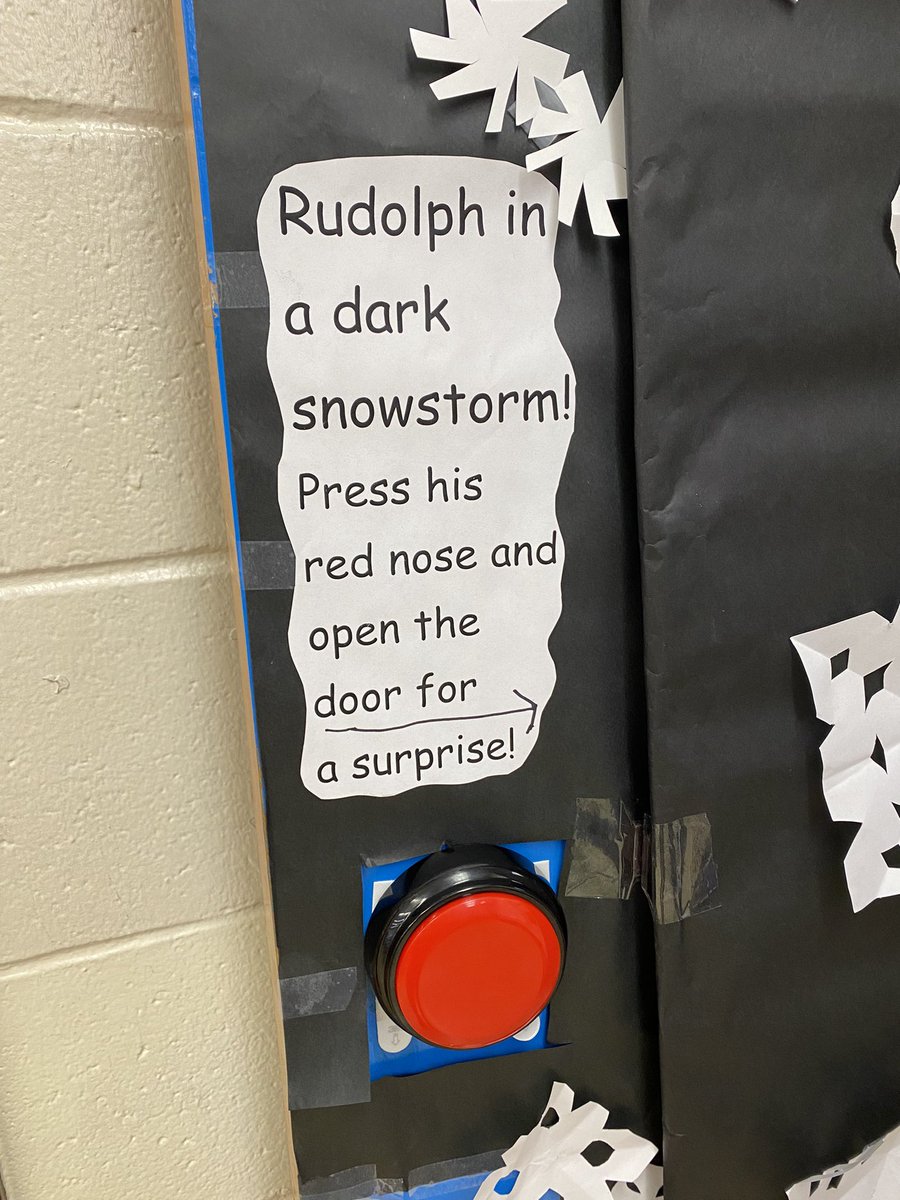 Rudolph in
a dark
snowstorm!
Press his
red nose and
open the
door for
a surprise!